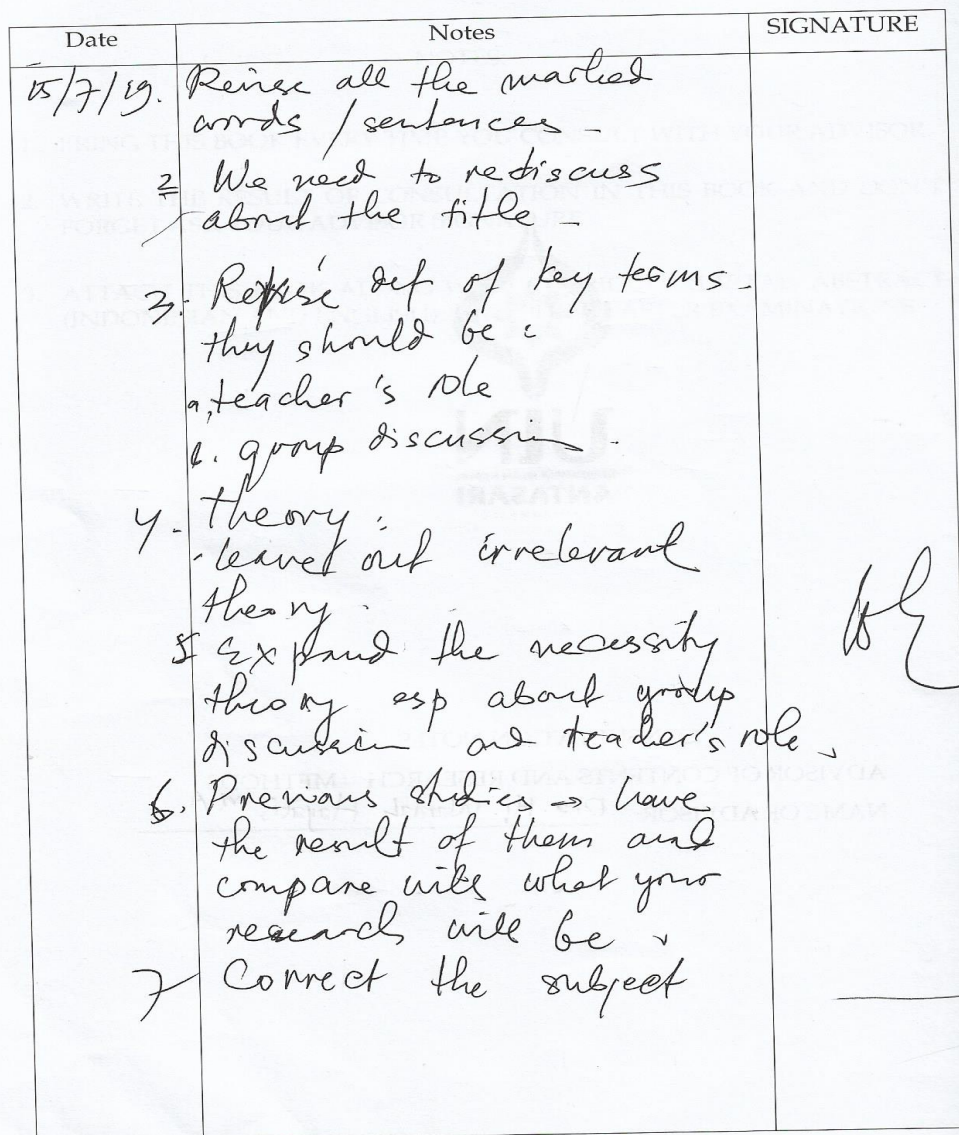 Date Notes SIGNATURE
15/7/19. Revise all the marked
words / sentences -
2 We need to rediscuss
about the title -
3. Revise def of key terms -
they should be :
a, teacher's role
b. group discussion -
4. theory :
- leaved out irrelevant
theory .
5 Expand the necessity
theory esp about group
discussion and teacher's role .
6. Previous studies → have
the result of them and
compare with what your
research will be .
7 Correct the subject